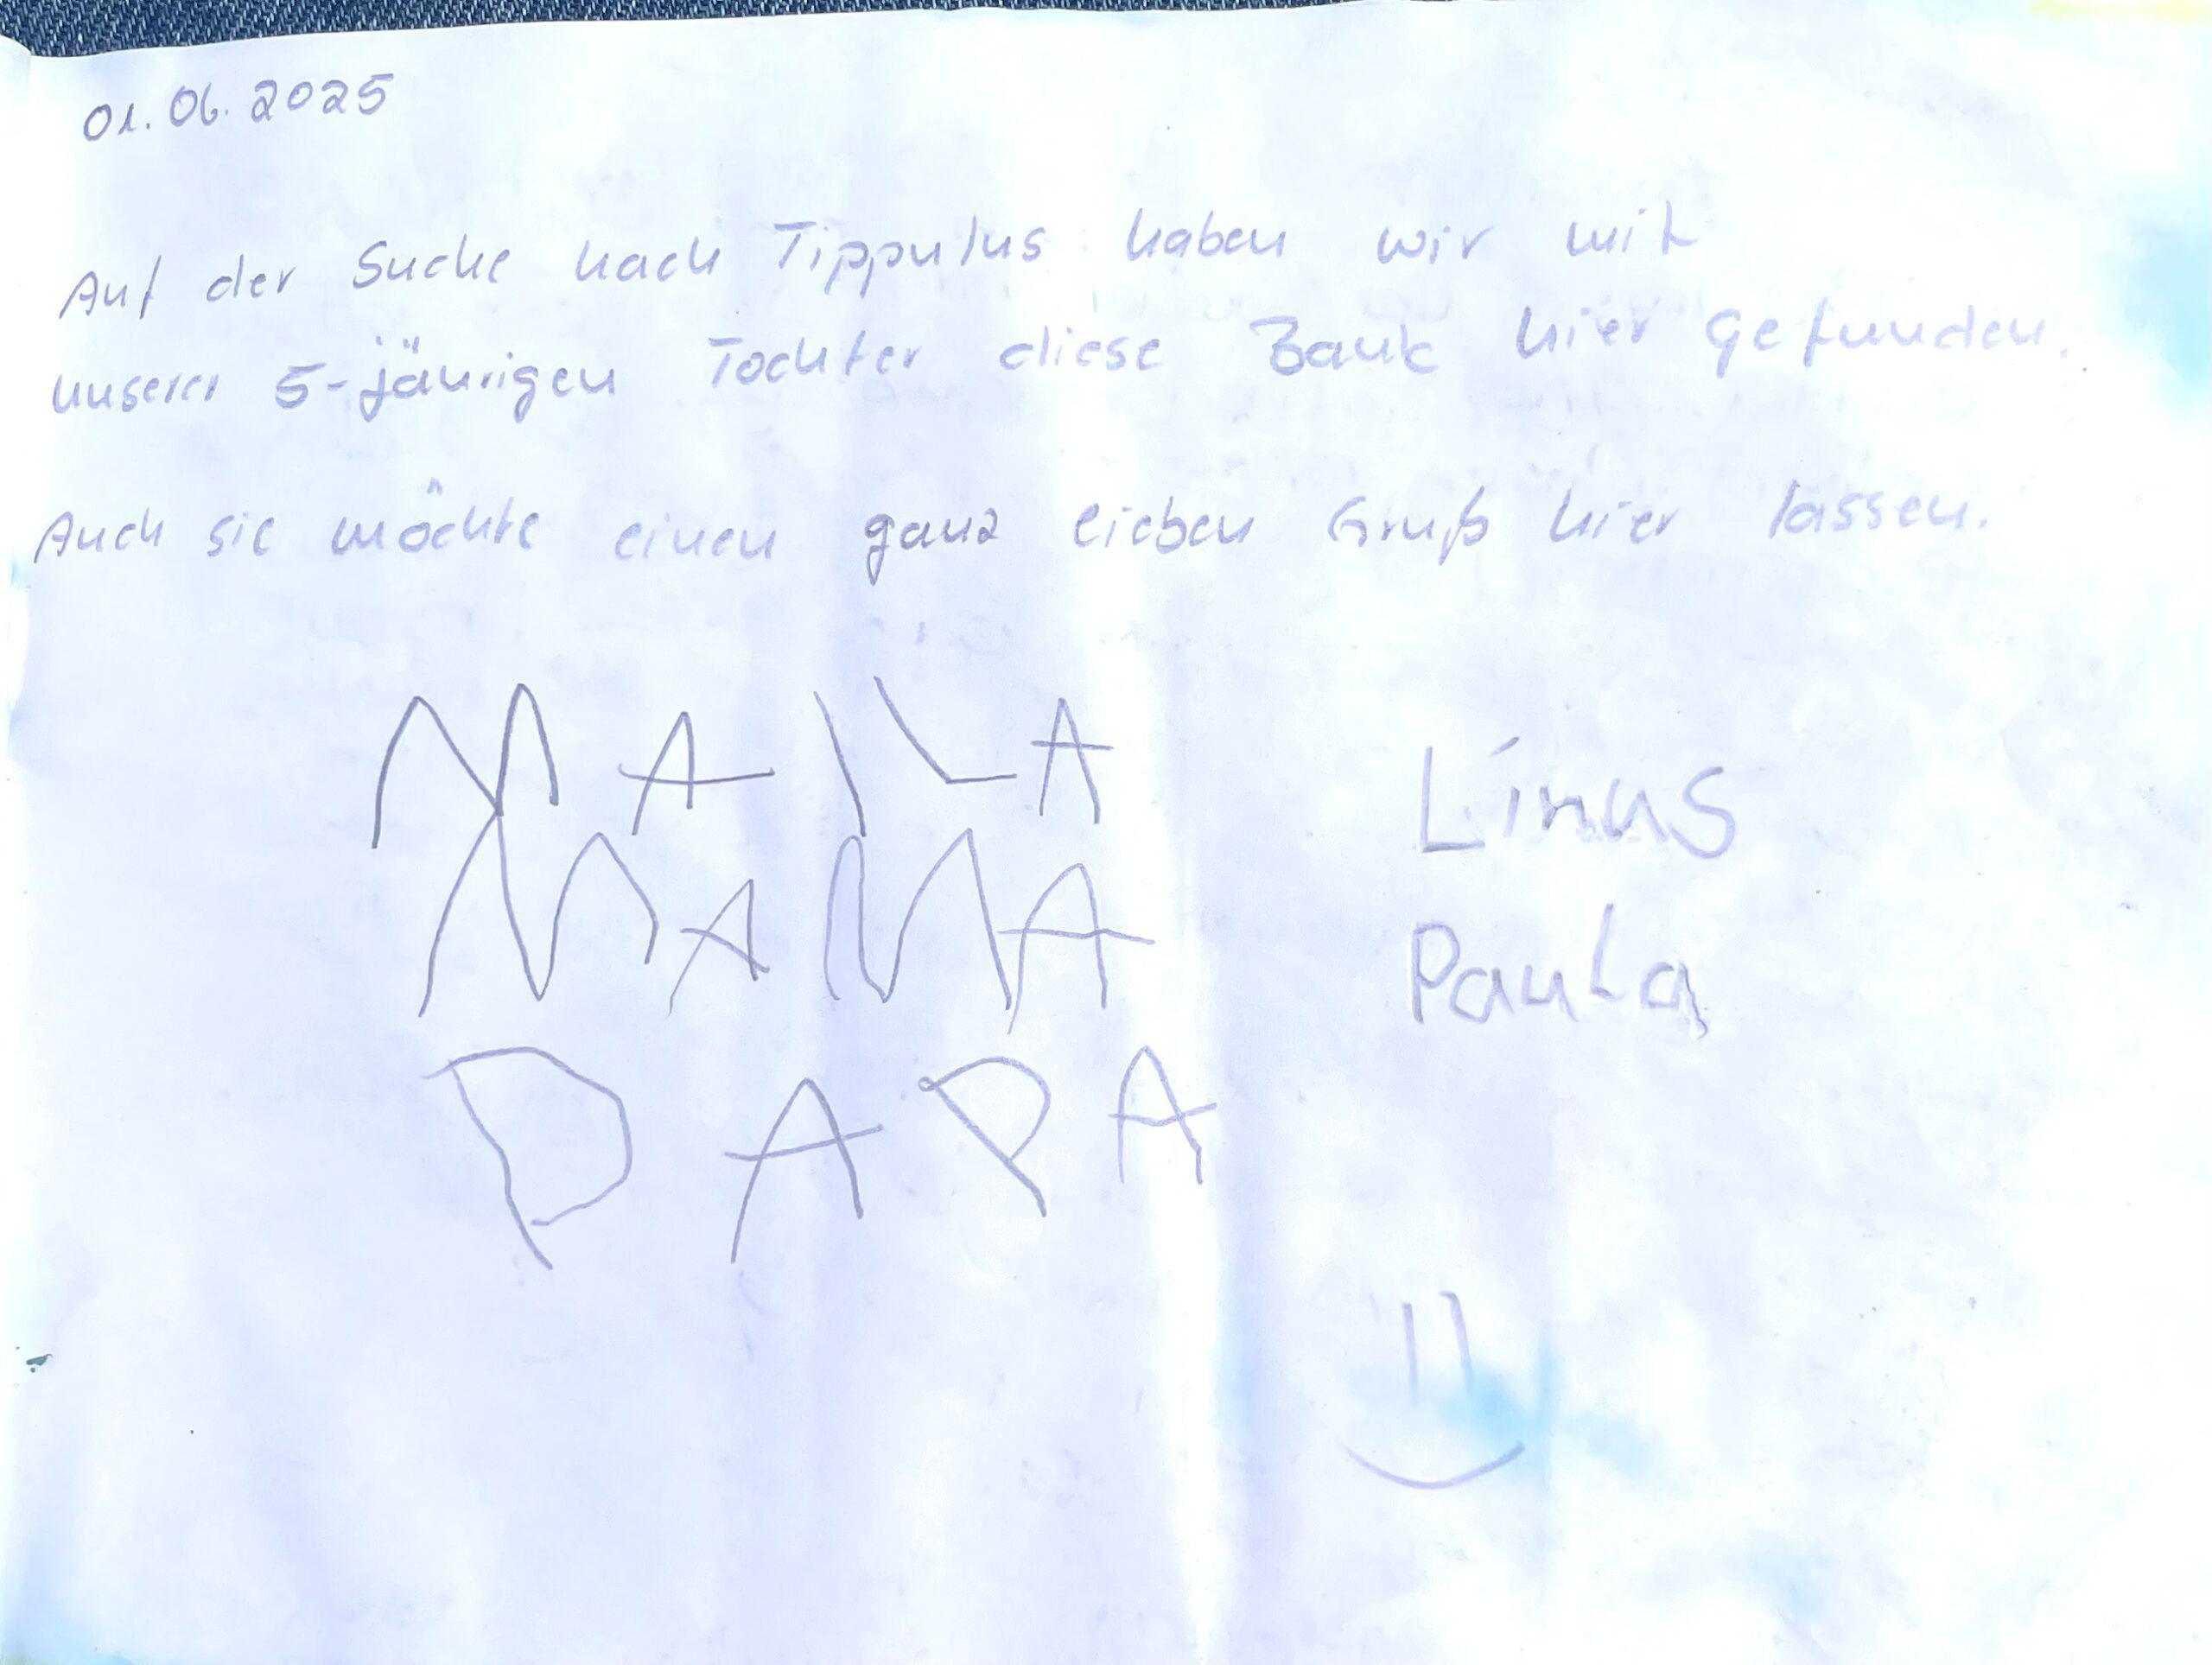 01.06.2025
Auf der Suche nach Tippulus haben wir mit
unserer 5-jährigen Tochter diese Bank hier gefunden.
Auch sie möchte einen ganz lieben Gruß hier lassen.
MAILA
MAMA
PAPA
Linus
Paula